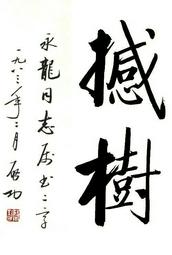 撼樹
永龍同志屬書二字
一九八三年二月 啟功